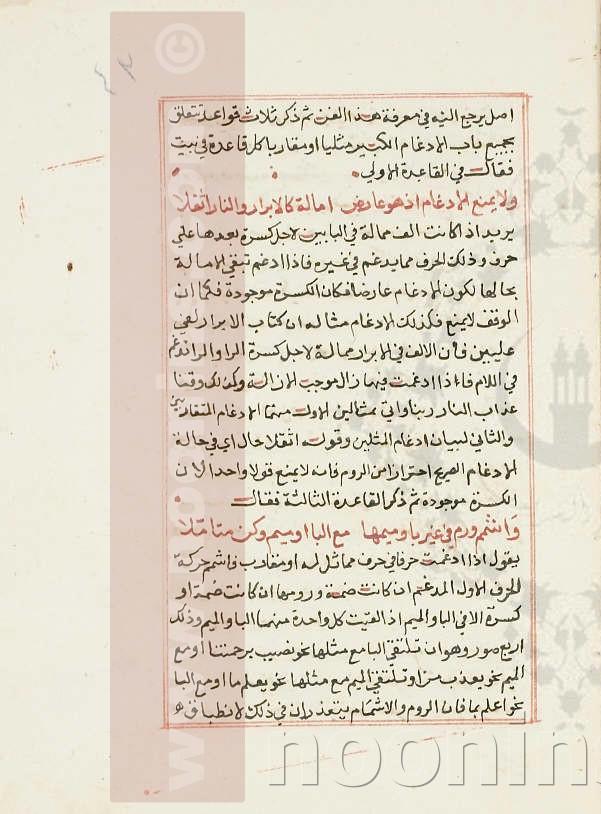 اصل يرجع اليه في معرفة هذا الفن ثم ذكر ثلاث قواعد تتعلق
بجميع باب الادغام الكبير مثليا او مقاربا كل قاعدة في بيت
فقال في القاعدة الاولي
ولا يمنع الادغام اذ هو عارض امالة كالابرار والنار اثقلا
يريد اذا كانت الف ممالة في البابين لاجل كسرة بعدها علي
حرف وذلك الحرف مما يدغم في غيره فاذا ادغم تبقي الامالة
بحالها لكون الادغام عارضا فكان الكسرة موجودة فكما ان
الوقف لا يمنع فكذلك الادغام مثاله ان كتاب الابرار لفي
عليين فان الالف في الابرار ممالة لاجل كسرة الرا والرا تدغم
في اللام فاذا ادغمت فيها زال الموجب للامالة وكذلك وقنا
عذاب النار ربنا واتي بمثالين الاول منهما الادغام المتقاربين
والثاني لبيان ادغام المثلين وقوله اثقلا حال اي في حالة
الادغام الصريح احترازا من الروم فانه لا يمنع قولا واحدا لان
الكسرة موجودة ثم ذكر القاعدة الثالثة فقال
وَاشمم ورم في غير با وميمها مع البا او ميم وكن متاملا
يقول اذا ادغمت حرفا في حرف مماثل له او مقارب فاشم حركة
الحرف الاول المدغم ان كانت ضمة ورومها ان كانت ضمة او
كسرة الا في البا والميم اذا القيت كل واحدة منهما البا والميم وذلك
اربع صور وهو ان تلتقي البا مع مثلها نحو نصيب برحمتنا او مع
الميم نحو يعذب من او تلتقي الميم مع مثلها نحو يعلم ما او مع البا
نحو اعلم بما فان الروم والاشمام يتعذران في ذلك لانطباق
www.noonin
©
noonin